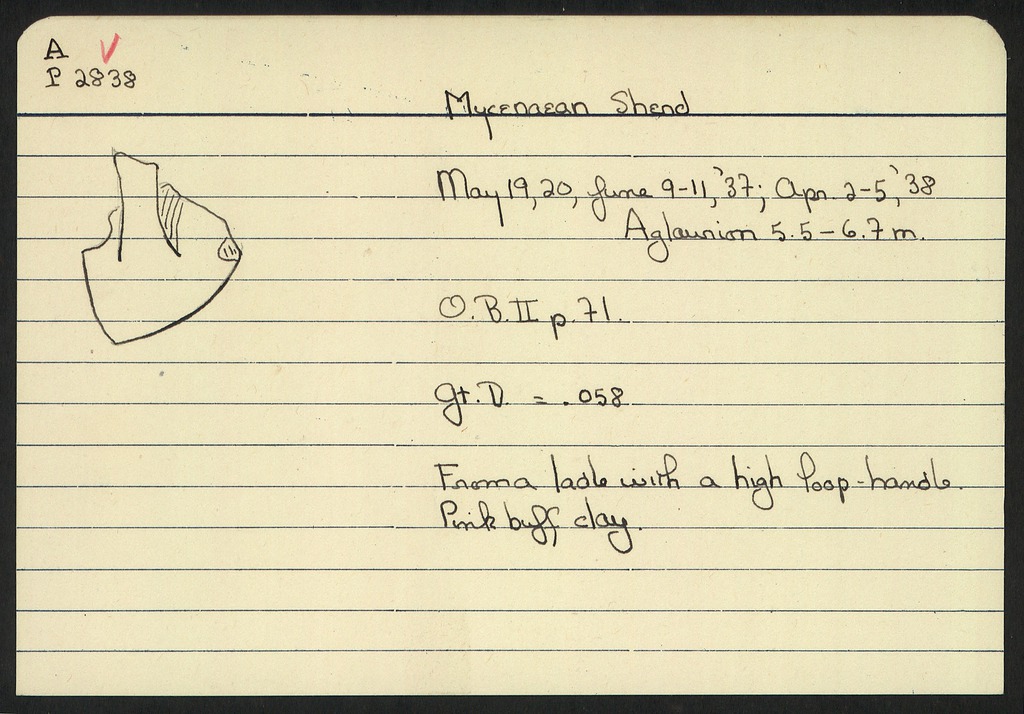 A
P 2838
Mycenaean Sherd
May 19, 20, June 9-11, '37; Apr. 2-5, '38
Aglaurion 5.5-6.7 m.
O.B. II p. 71.
Gt. D. = .058
From a ladle with a high loop-handle.
Pink buff clay.